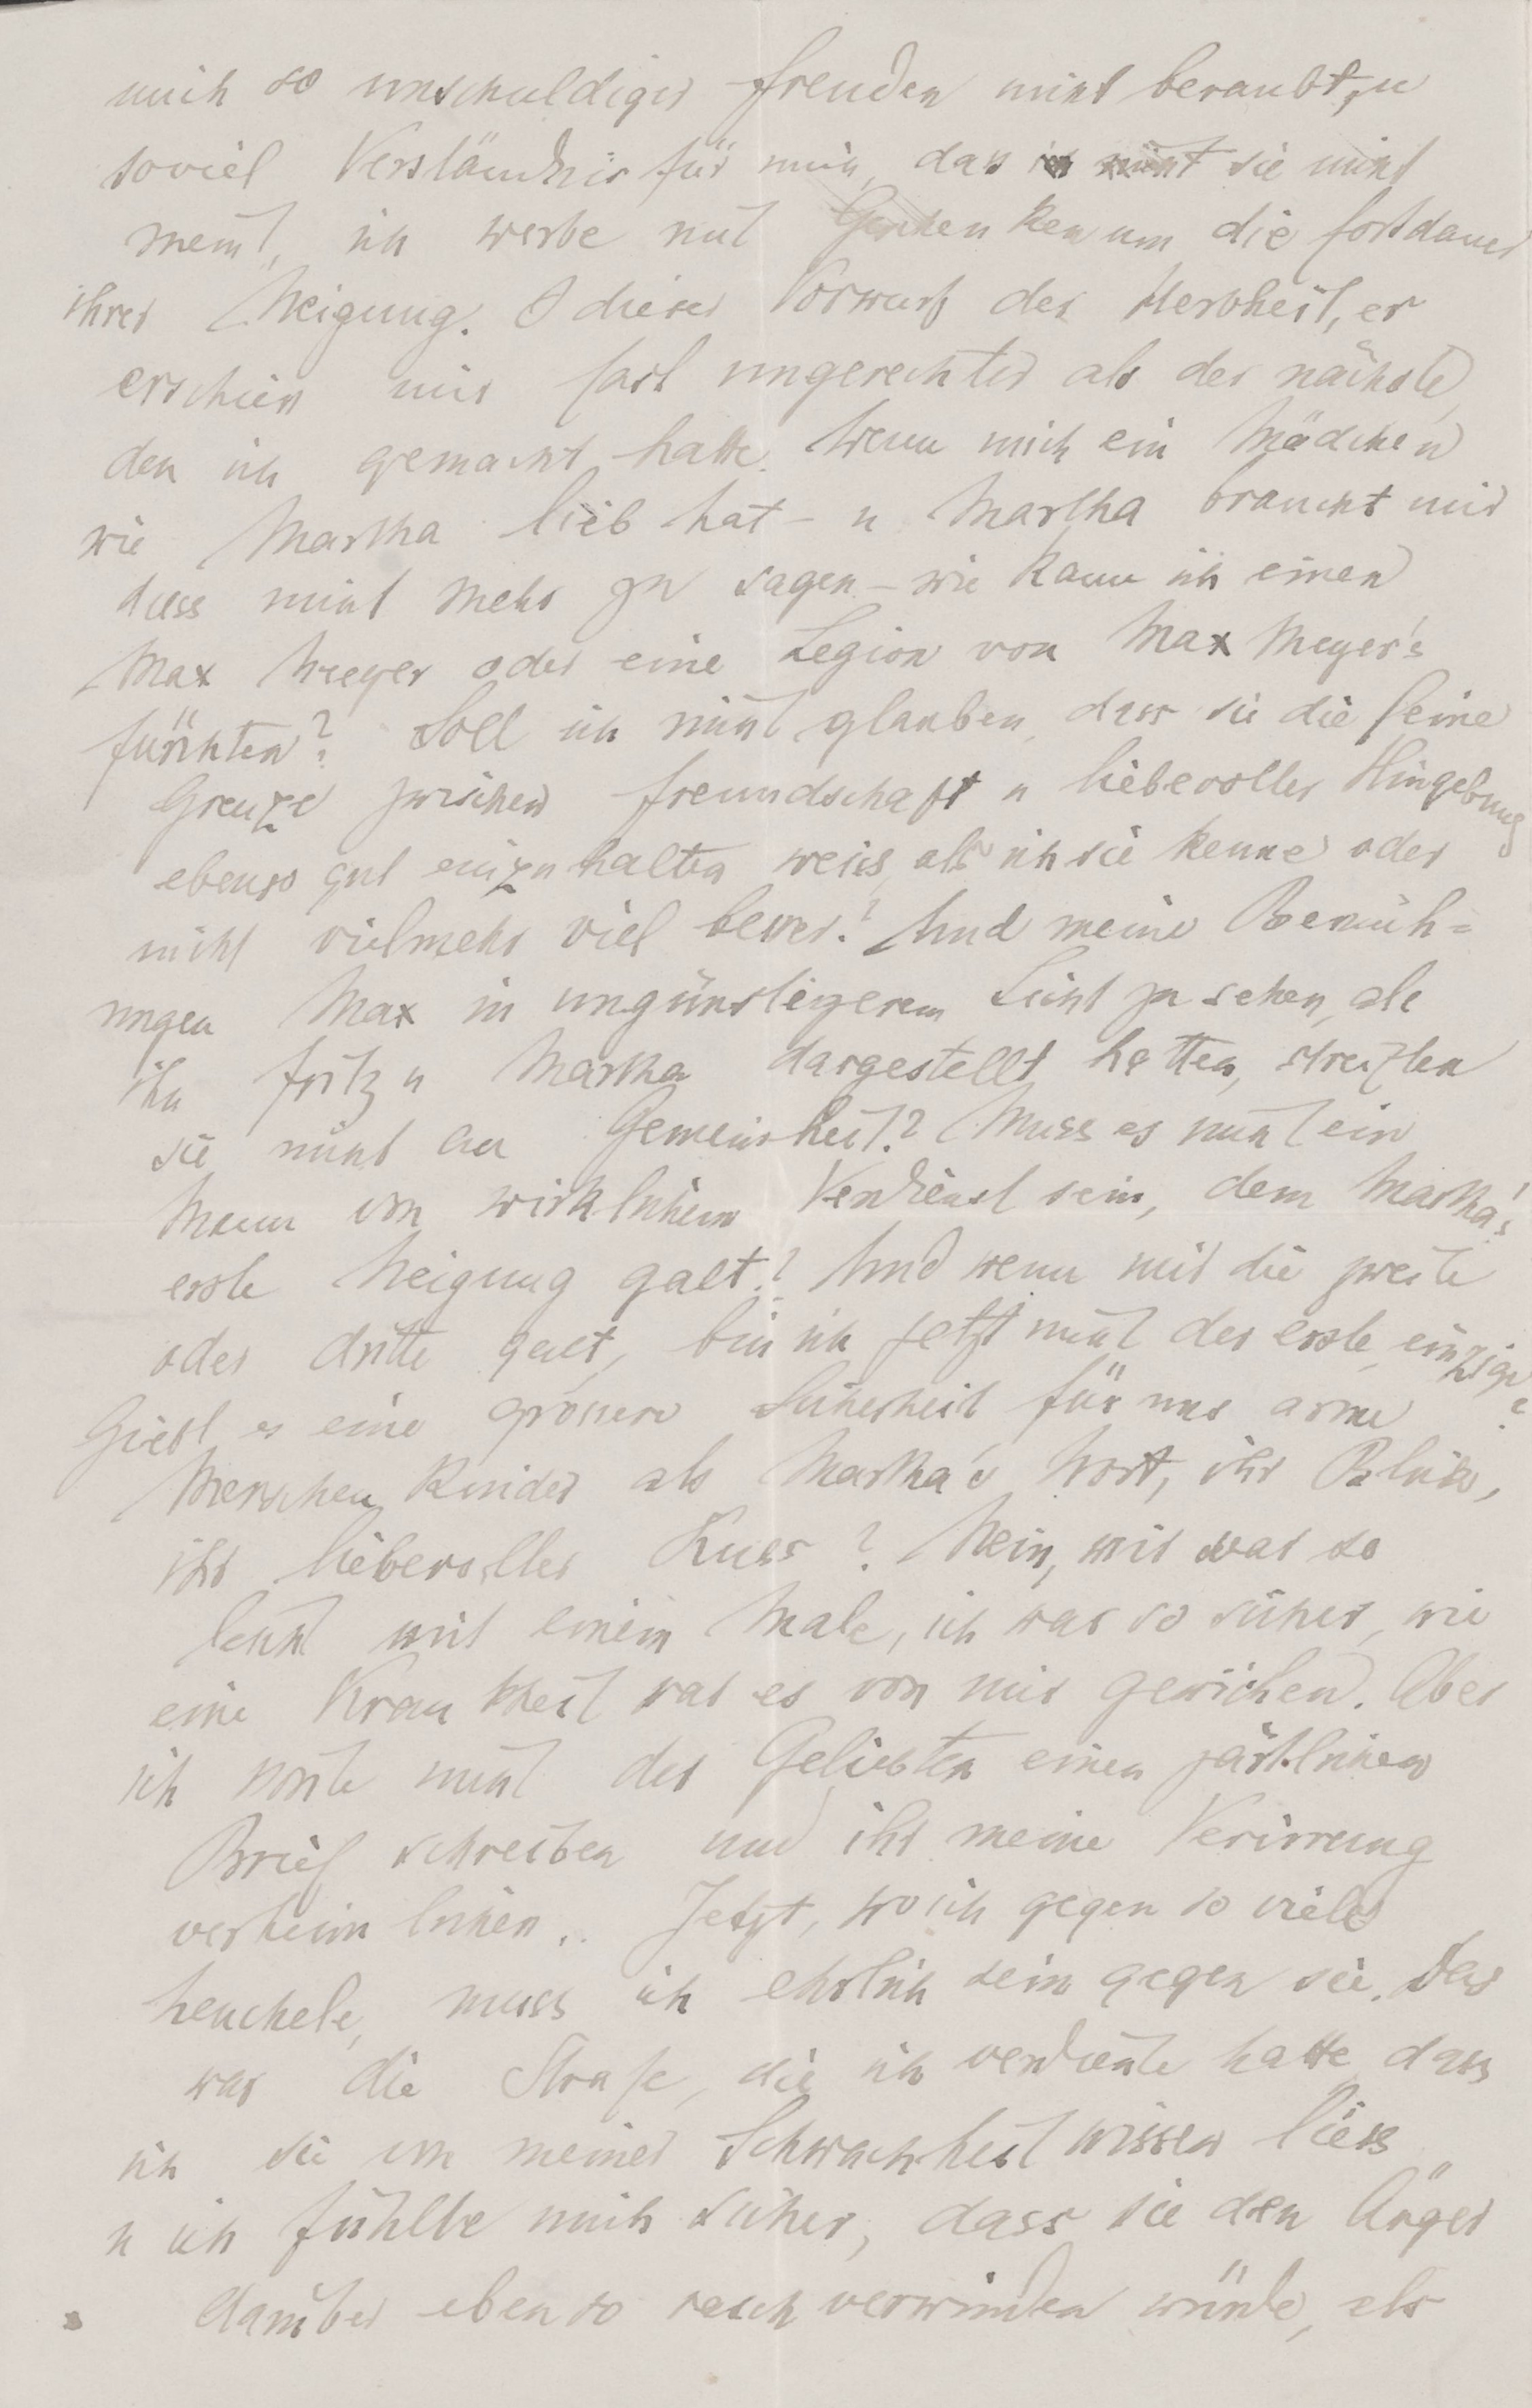 mich so unschuldiger Freuden nicht beraubt, u
soviel Verständnis für mich, dass sie nicht
meint, ich werbe mit Geschenken um die Fortdauer
ihrer Neigung. O dieser Vorwurf der Herbheit, er
erschien mir fast ungerechter als der nächste,
den ich gemacht hatte. Wenn mich ein Mädchen
wie Martha lieb hat – u Martha braucht mir
dies nicht mehr zu sagen – wie kann ich einen
Max Meyer oder eine Legion von Max Meyer's
fürchten? Soll ich nicht glauben, dass sie die feine
Grenze zwischen Freundschaft u liebevoller Hingebung
ebenso gut einzuhalten weiss, als ich sie kenne oder
nicht vielmehr viel besser? Und meine Bemüh=
ungen Max in ungünstigerem Licht zu sehen, als
ihn Fritz u Martha dargestellt hatten, streiften
sie nicht an Gemeinheit? Muss es nicht ein
Mann von wirklichem Verdienst sein, dem Martha's
erste Neigung galt? Und wenn mir die zweite
oder dritte galt, bin ich jetzt nicht der erste, einzige?
Giebt es eine grössere Sicherheit für uns arme
Menschenkinder als Martha's Wort, ihr Blick,
ihr liebevoller Kuss? Nein, mir war so
leicht mit einem Male, ich war so sicher, wie
eine Krankheit war es von mir gewichen. Aber
ich konnte nicht der Geliebten einen zärtlichen
Brief schreiben und ihr meine Verirrung
verheimlichen.. Jetzt, wo ich gegen so viele
heuchele, muss ich ehrlich sein gegen sie. Das
war die Strafe, die ich verdiente hatte, dass
ich sie von meiner Schwachheit wissen liess
u ich fühlte mich sicher, dass sie den Ärger
darüber ebenso rasch verwinden würde, als